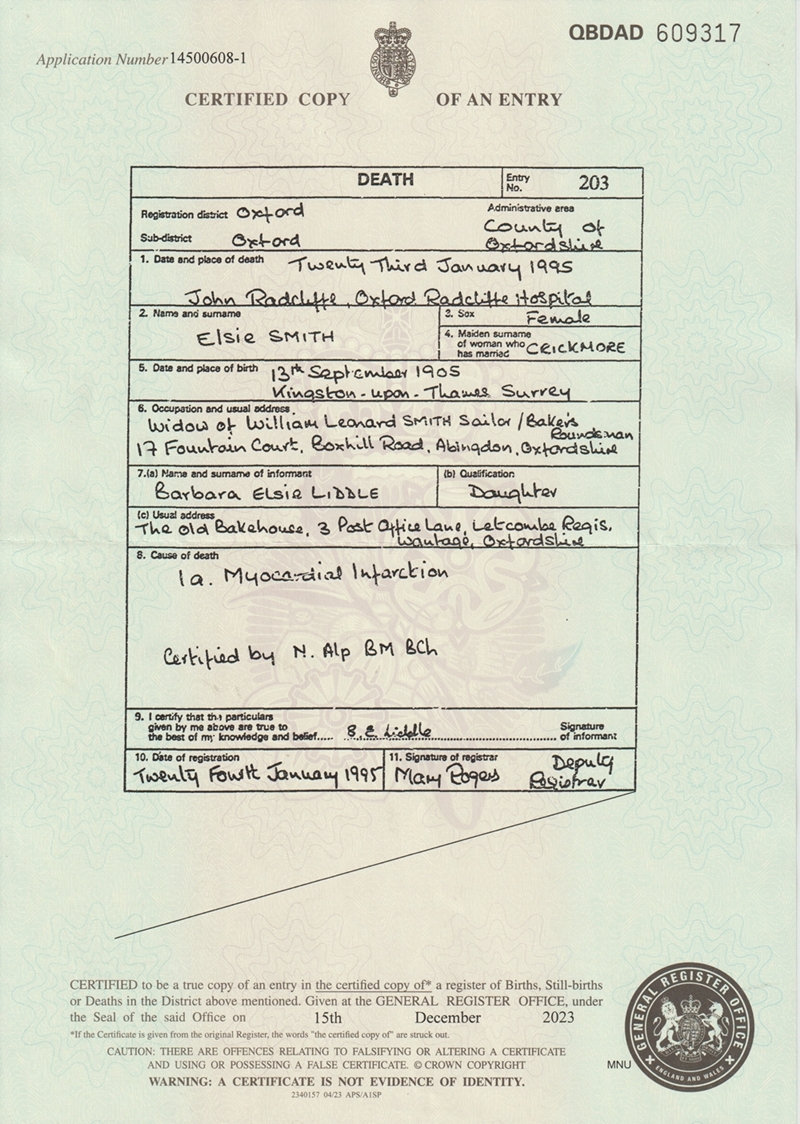 QBDAD 609317
Application Number 14500608-1
CERTIFIED COPY OF AN ENTRY
DEATH
Entry No. 203
Registration district Oxford
Administrative area
Sub-district Oxford
County of Oxfordshire
1. Date and place of death Twenty Third January 1995
John Radcliffe, Oxford Radcliffe Hospital
2. Name and surname
Elsie SMITH
3. Sex Female
4. Maiden surname
of woman who
has married CRICKMORE
5. Date and place of birth 13th September 1905
Kingston-upon-Thames Surrey
6. Occupation and usual address
Widow of William Leonard SMITH Sailor / Bakers
Roundsman
17 Fountain Court, Boxhill Road, Abingdon, Oxfordshire
7.(a) Name and surname of informant
Barbara Elsie LIDDLE
(b) Qualification
Daughter
(c) Usual address
The Old Bakehouse, 3 Post Office Lane, Letcombe Regis,
Wantage, Oxfordshire
8. Cause of death
1a. Myocardial Infarction
Certified by N. Alp BM BCh
9. I certify that the particulars
given by me above are true to
the best of my knowledge and belief..... B.E. Liddle
Signature
of informant
10. Date of registration
Twenty Fourth January 1995
11. Signature of registrar
Mary Rogers
Deputy
Registrar
CERTIFIED to be a true copy of an entry in the certified copy of* a register of Births, Still-births
or Deaths in the District above mentioned. Given at the GENERAL REGISTER OFFICE, under
the Seal of the said Office on 15th December 2023
*If the Certificate is given from the original Register, the words "the certified copy of" are struck out.
CAUTION: THERE ARE OFFENCES RELATING TO FALSIFYING OR ALTERING A CERTIFICATE
AND USING OR POSSESSING A FALSE CERTIFICATE. © CROWN COPYRIGHT
WARNING: A CERTIFICATE IS NOT EVIDENCE OF IDENTITY.
2340157 04/23 APS/A1SP
MNU
GENERAL REGISTER OFFICE
ENGLAND AND WALES